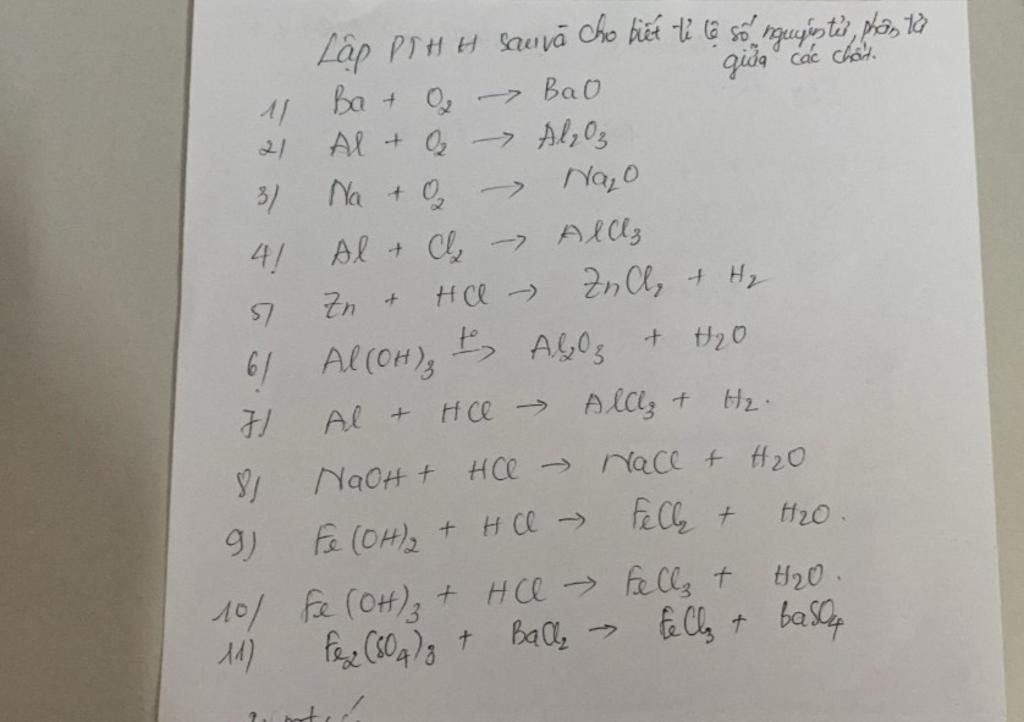 Lập PTHH sau và cho biết tỉ lệ số nguyên tử, phân tử
giữa các chất.
1/ Ba + O₂ → BaO
2/ Al + O₂ → Al₂O₃
3/ Na + O₂ → Na₂O
4/ Al + Cl₂ → AlCl₃
5/ Zn + HCl → ZnCl₂ + H₂
6/ Al(OH)₃ t° → Al₂O₃ + H₂O
7/ Al + HCl → AlCl₃ + H₂.
8/ NaOH + HCl → NaCl + H₂O
9) Fe(OH)₂ + HCl → FeCl₂ + H₂O.
10/ Fe(OH)₃ + HCl → FeCl₃ + H₂O.
11) Fe₂(SO₄)₃ + BaCl₂ → FeCl₃ + BaSO₄